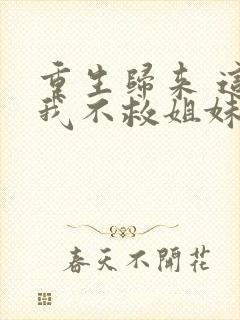 重生歸來 這
我不救姐妹
春天不開花